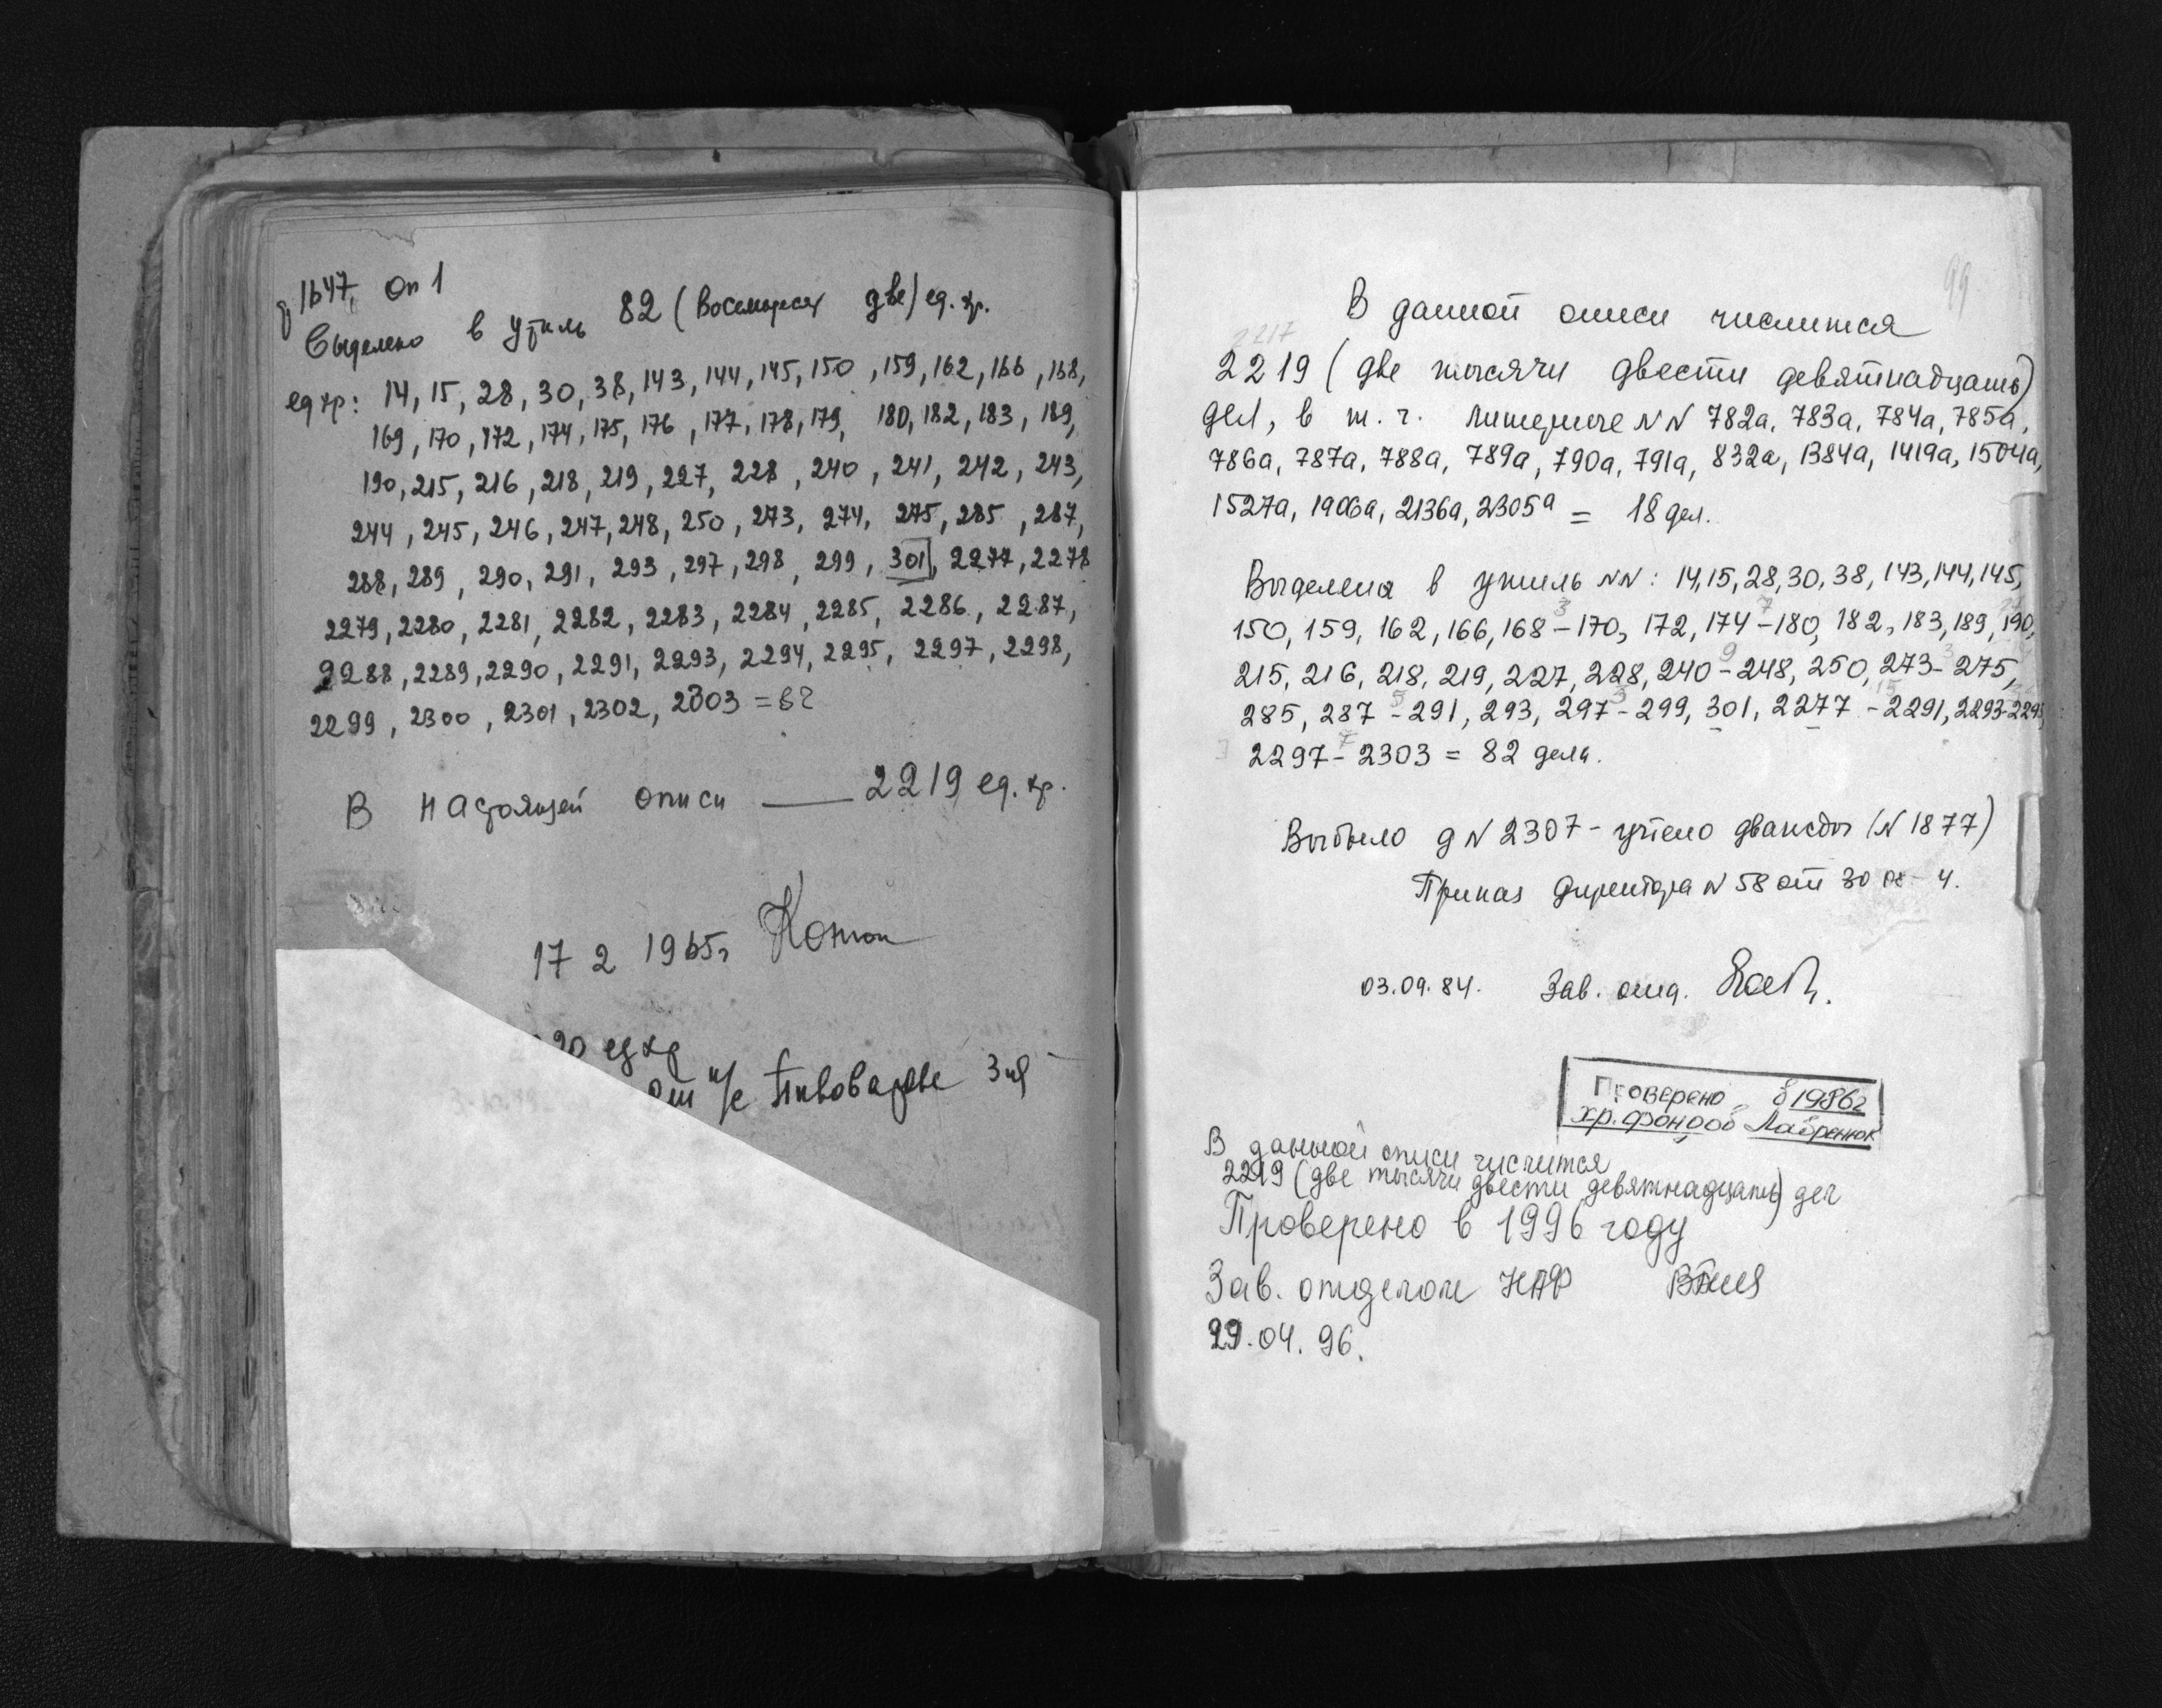 ф 1647, оп 1
Выделено в утиль 82 (восемьдесят две) ед. хр.
ед хр: 14, 15, 28, 30, 38, 143, 144, 145, 150, 159, 162, 166, 168,
169, 170, 172, 174, 175, 176, 177, 178, 179, 180, 182, 183, 189,
190, 215, 216, 218, 219, 227, 228, 240, 241, 242, 243,
244, 245, 246, 247, 248, 250, 273, 274, 275, 285, 287,
288, 289, 290, 291, 293, 297, 298, 299, 301, 2277, 2278
2279, 2280, 2281, 2282, 2283, 2284, 2285, 2286, 2287,
2288, 2289, 2290, 2291, 2293, 2294, 2295, 2297, 2298,
2299, 2300, 2301, 2302, 2303 = 82
В настоящей описи — 2219 ед. хр.
17 2 1965г
20 ед хр
99
В данной описи числится
2217
2219 (две тысячи двести девятнадцать)
дел, в т. ч. литерные NN 782а, 783а, 784а, 785а,
786а, 787а, 788а, 789а, 790а, 791а, 832а, 1384а, 1419а, 1504а,
1527а, 1906а, 2136а, 2305а = 18 дел.
Выделена в утиль NN: 14, 15, 28, 30, 38, 143, 144, 145,
150, 159, 162, 166, 168-170, 172, 174-180, 182, 183, 189, 190,
215, 216, 218, 219, 227, 228, 240-248, 250, 273-275,
285, 287-291, 293, 297-299, 301, 2277-2291, 2293-2295
2297-2303 = 82 дела.
Выбыло д N 2307 - учтено дважды (N 1877)
Приказ директора N 58 от 30
03.09.84. Зав. отд.
Проверено в 1986г
хр. фондов Лавренюк
В данной описи числится
2219 (две тысячи двести девятнадцать) дел
Проверено в 1996 году
Зав. отделом НАФ
29.04.96.